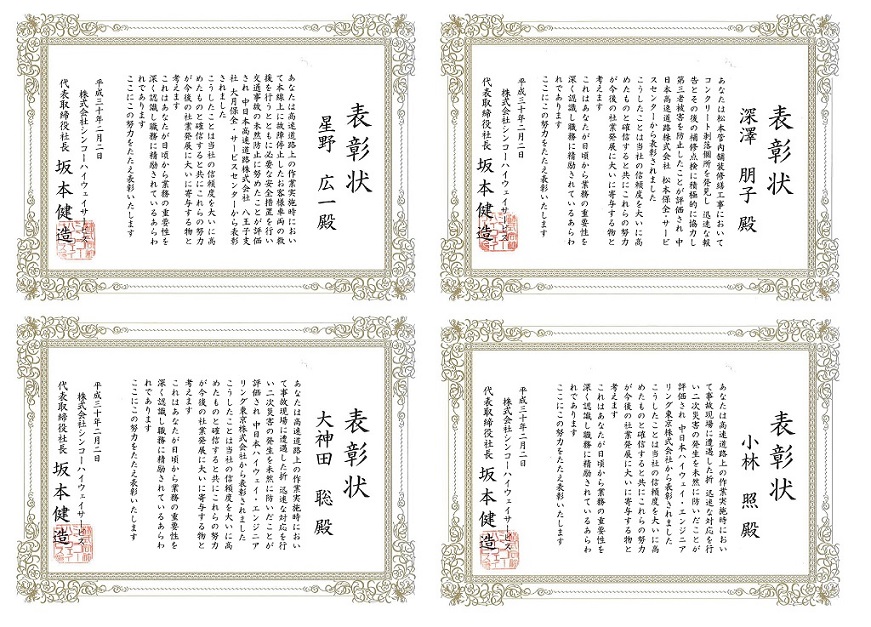 表彰状
星野 広一殿
あなたは高速道路上の作業実施時におい
て本線上に故障停止したお客様車両の救
援を行うとともに必要な安全措置を行い
交通事故の未然防止に努めたことが評価
され 中日本高速道路株式会社 八王子支
社 大月保全・サービスセンターから表彰
されました
こうしたことは当社の信頼度を大いに高
めたものと確信すると共にこれらの努力
が今後の社業発展に大いに寄与する物と
考えます
これはあなたが日頃から業務の重要性を
深く認識し職務に精励されているあらわ
れであります
ここにこの努力をたたえ表彰いたします
平成三十年二月二日
株式会社シンコーハイウェイサービス
代表取締役社長 坂本健造
表彰状
深澤 朋子殿
あなたは松本管内舗装修繕工事において
コンクリート剥落個所を発見し 迅速な報
告とその後の補修点検に積極的に協力し
第三者被害を防止したことが評価され 中
日本高速道路株式会社 松本保全・サービ
スセンターから表彰されました
こうしたことは当社の信頼度を大いに高
めたものと確信すると共にこれらの努力
が今後の社業発展に大いに寄与する物と
考えます
これはあなたが日頃から業務の重要性を
深く認識し職務に精励されているあらわ
れであります
ここにこの努力をたたえ表彰いたします
平成三十年二月二日
株式会社シンコーハイウェイサービス
代表取締役社長 坂本健造
表彰状
大神田 聡殿
あなたは高速道路上の作業実施時におい
て事故現場に遭遇した折 迅速な対応を行
い二次災害の発生を未然に防いだことが
評価され 中日本ハイウェイ・エンジニア
リング東京株式会社から表彰されました
こうしたことは当社の信頼度を大いに高
めたものと確信すると共にこれらの努力
が今後の社業発展に大いに寄与する物と
考えます
これはあなたが日頃から業務の重要性を
深く認識し職務に精励されているあらわ
れであります
ここにこの努力をたたえ表彰いたします
平成三十年二月二日
株式会社シンコーハイウェイサービス
代表取締役社長 坂本健造
表彰状
小林 照殿
あなたは高速道路上の作業実施時におい
て事故現場に遭遇した折 迅速な対応を行
い二次災害の発生を未然に防いだことが
評価され 中日本ハイウェイ・エンジニア
リング東京株式会社から表彰されました
こうしたことは当社の信頼度を大いに高
めたものと確信すると共にこれらの努力
が今後の社業発展に大いに寄与する物と
考えます
これはあなたが日頃から業務の重要性を
深く認識し職務に精励されているあらわ
れであります
ここにこの努力をたたえ表彰いたします
平成三十年二月二日
株式会社シンコーハイウェイサービス
代表取締役社長 坂本健造